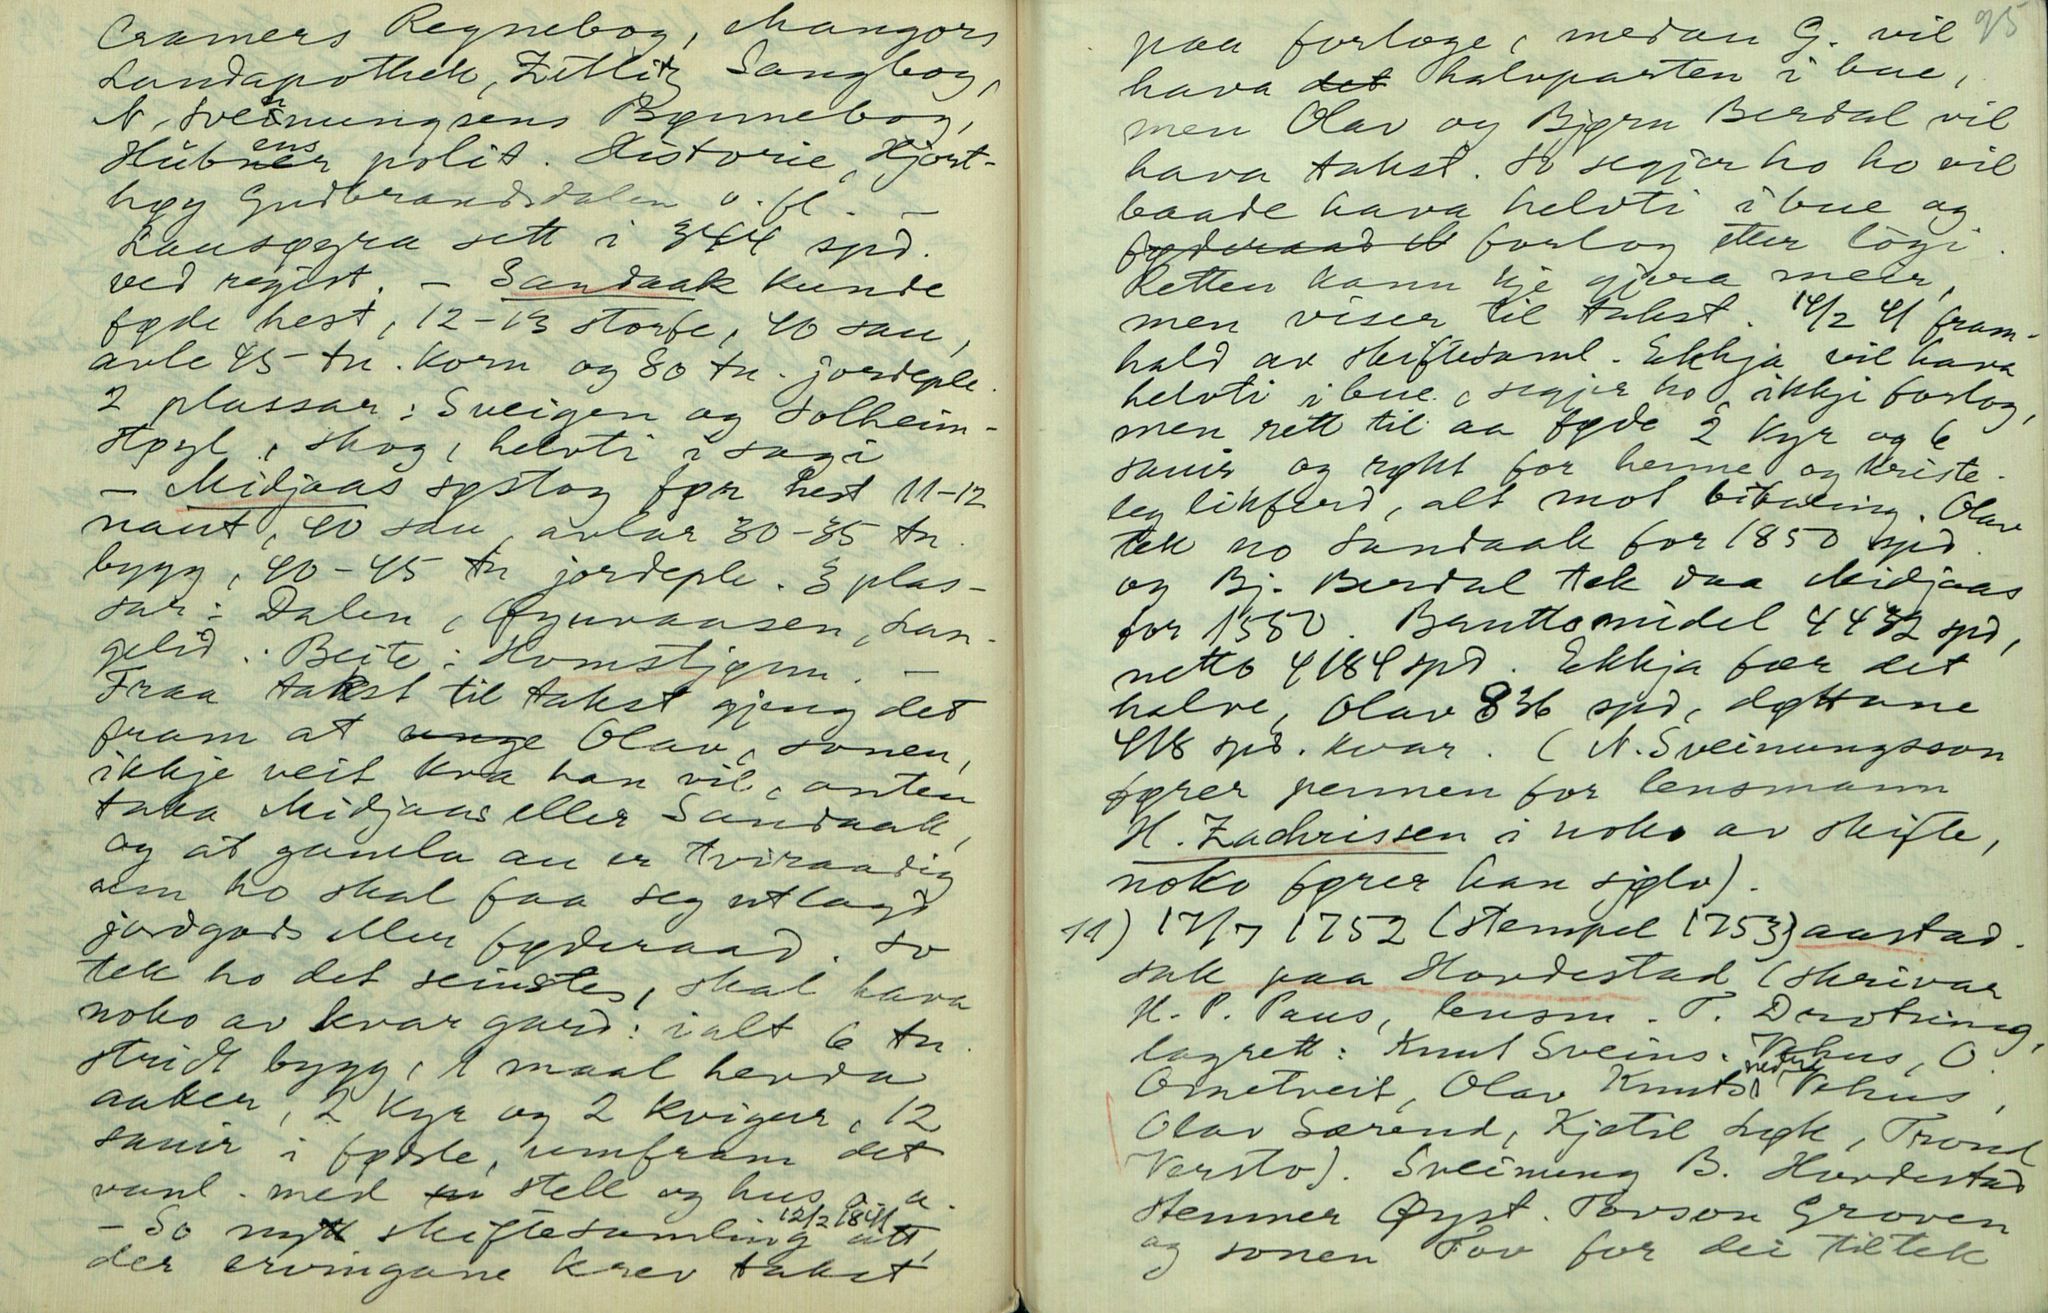 Cramers Regnebog, Mangors
Landapothek, Zetlitz Sangbog,
N. Sveinungsens Bønnebog,
Hübeners polit. Historie, Hjort-
høy Gudbrandsdalen o. fl. –
Lausøyra sett i 344 spd.
ved regist. – Sandaak kunde
føde hest, 12-13 storfe, 40 sau,
avle 45 tn. korn og 80 tn. jordeple.
2 plassar: Sveigen og Solheim-
støyl, skog, helvti i sagi
– Midjaas søstog før hest 11-12
naut, 40 sau, avlar 30-35 tn.
bygg, 40-45 tn jordeple. 3 plas-
sar: Dalen, Øynvaasen, Lan-
gelid. Beite: Homstjønn. –
Fraa takst til takst gjeng det
fram at unge Olav, sonen,
ikkje veit kva han vil, anten
taka Midjaas eller Sandaak,
og at gamla au er tviraadig
um ho skal faa seg utlagd
jordgods eller føderaad. So
tek ho det seinste, skal hava
noko av kvar gard: ialt 6 tn.
stridt bygg, 1 maal hevda
aaker, 2 kyr og 2 kvigur, 12
sauir i fødsle, umfram det
vanl. med stell og hus o. a.
– So nytt skiftesamling 12/2 1841 att,
der ervingane krev takst
95
paa forloge, medan G. vil
hava det halvparten i bue,
men Olav og Bjørn Berdal vil
hava takst. So segjer ho ho vil
baade hava helvti i bue og
føderaad forlog etter logi.
Retten kann kje gjera meir,
men viser til takst. 14/2 41 fram-
hald av skiftesaml. Ekkja vil hava
helvti i bue, segjer ho, ikkje forlog,
men rett til aa føde 2 kyr og 6
sauir og røkt for henne og kriste-
leg likferd, alt mot bitaling. Olav
tek no Sandaak for 1850 spd.
og Bj. Berdal tek daa Midjaas
for 1550. Bruttomidel 4432 spd,
netto 4184 spd. Ekkja fær det
halve, Olav 836 spd, døttane
418 spd. kvar. (N. Sveinungsson
fører pennen for lensmann
H. Zachrissen i noko av skifte,
noko fører han sjølv).
11) 17/7 1752 (stempel 1753) aastad-
sak paa Hovdestad (skrivar
H. P. Paus, lensm. T. Drotning,
lagrett: Knut Sveins. Vehus, O.
Ormetveit, Olav Knutsi nedre Vehus,
Olav Særend, Kjetil Løk, Trond
Versto). Sveinung B. Hovdestad
stemner Øyst. Tovson Groven
og sonen Tov for dei tiltek